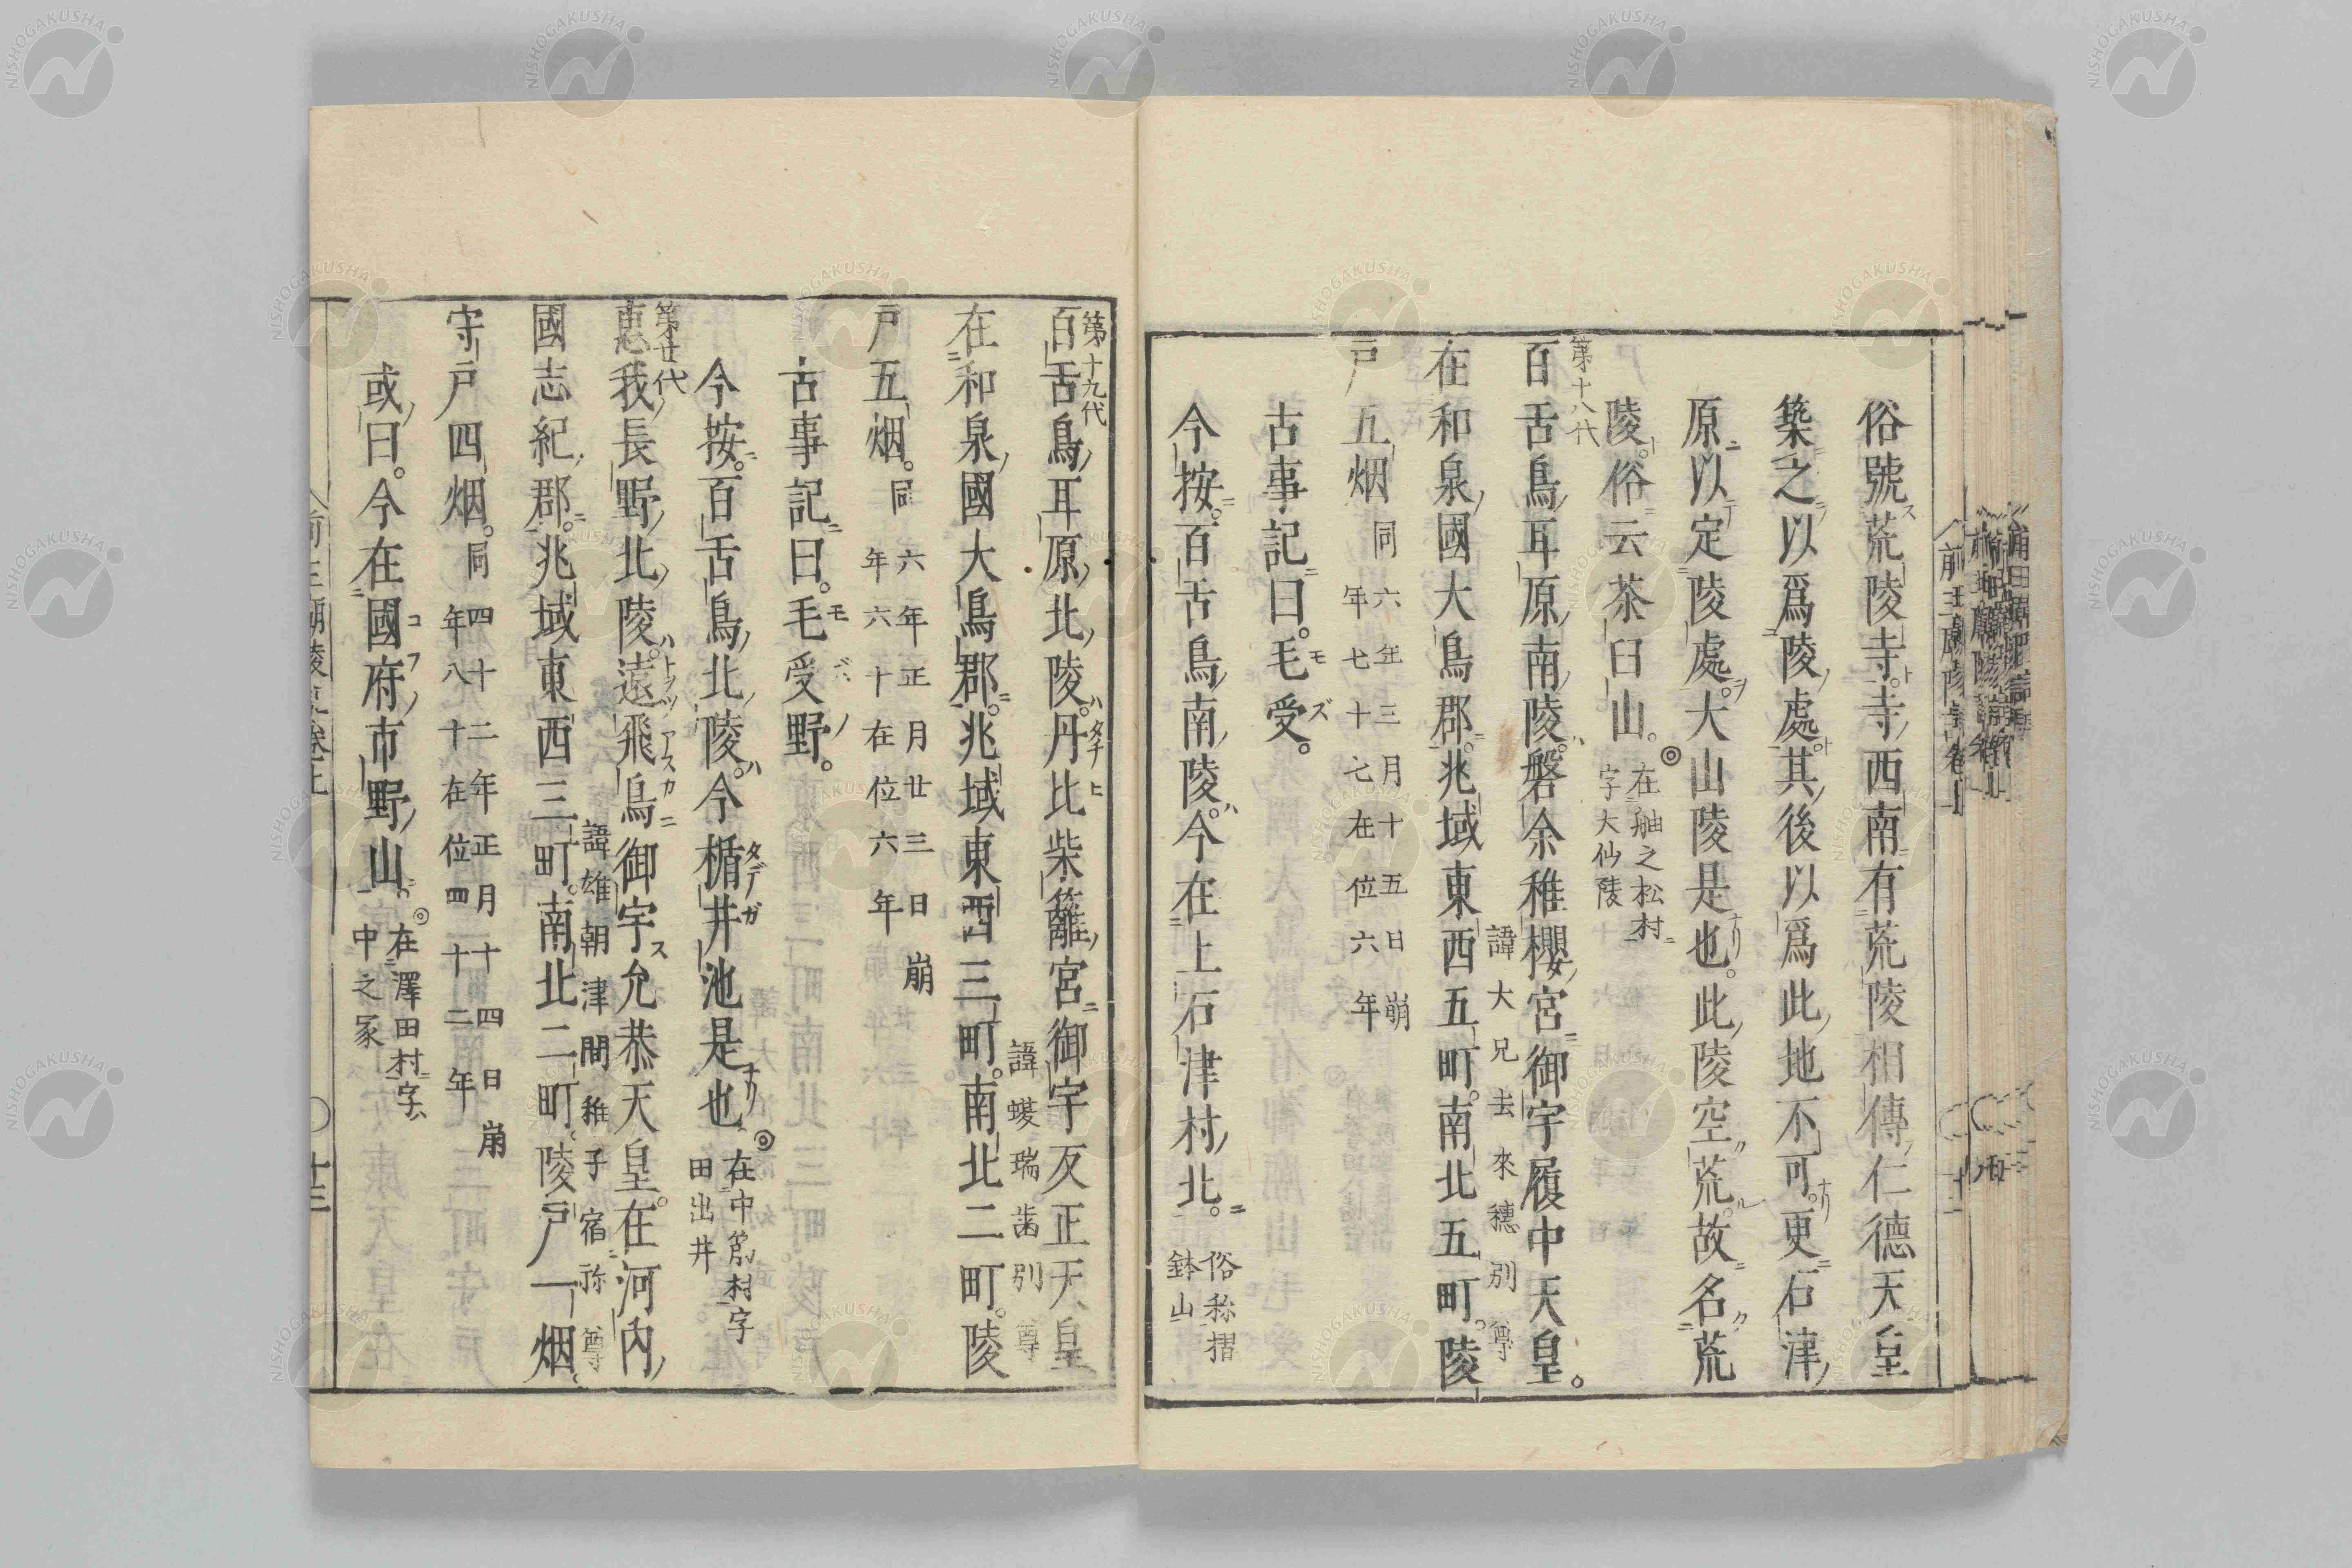 俗號荒陵寺寺西南有荒陵相傳仁德天皇
築之以爲陵處其後以爲此地不可更石津
原以定陵處大山陵是也此陵空荒故名荒
陵俗云茶臼山。◎在舳之松村
字大仙陵
第十八代
百舌鳥耳原南陵磐余稚櫻宮御宇履中天皇。
諱大兄去來穗別尊
在和泉國大鳥郡兆域東西五町南北五町陵
戸五烟 同六年三月十五日崩
年七十七在位六年
古事記曰。毛受。
今按。百舌鳥南陵今在上石津村北。俗称摺
鉢山
第十九代
百舌鳥耳原北陵丹比柴籬宮御宇反正天皇
諱蝮瑞歯別尊
在和泉國大鳥郡。兆域東西三町。南北二町。陵
戸五烟。同六年正月廿三日崩
年六十在位六年
古事記曰。毛受野。
今按。百舌鳥北陵。今楯井池是也◎在中筋村字
田出井
第廿代
恵我長野北陵。遠飛鳥御宇允恭天皇。在河内
諱雄朝津間稚子宿祢尊
國志紀郡。兆域東西三町。南北二町。陵戸一烟。
守戸四烟。同四十二年正月十四日崩
年八十在位四十二年
或曰。今在國府市野山。◎在澤田村字
中之冢